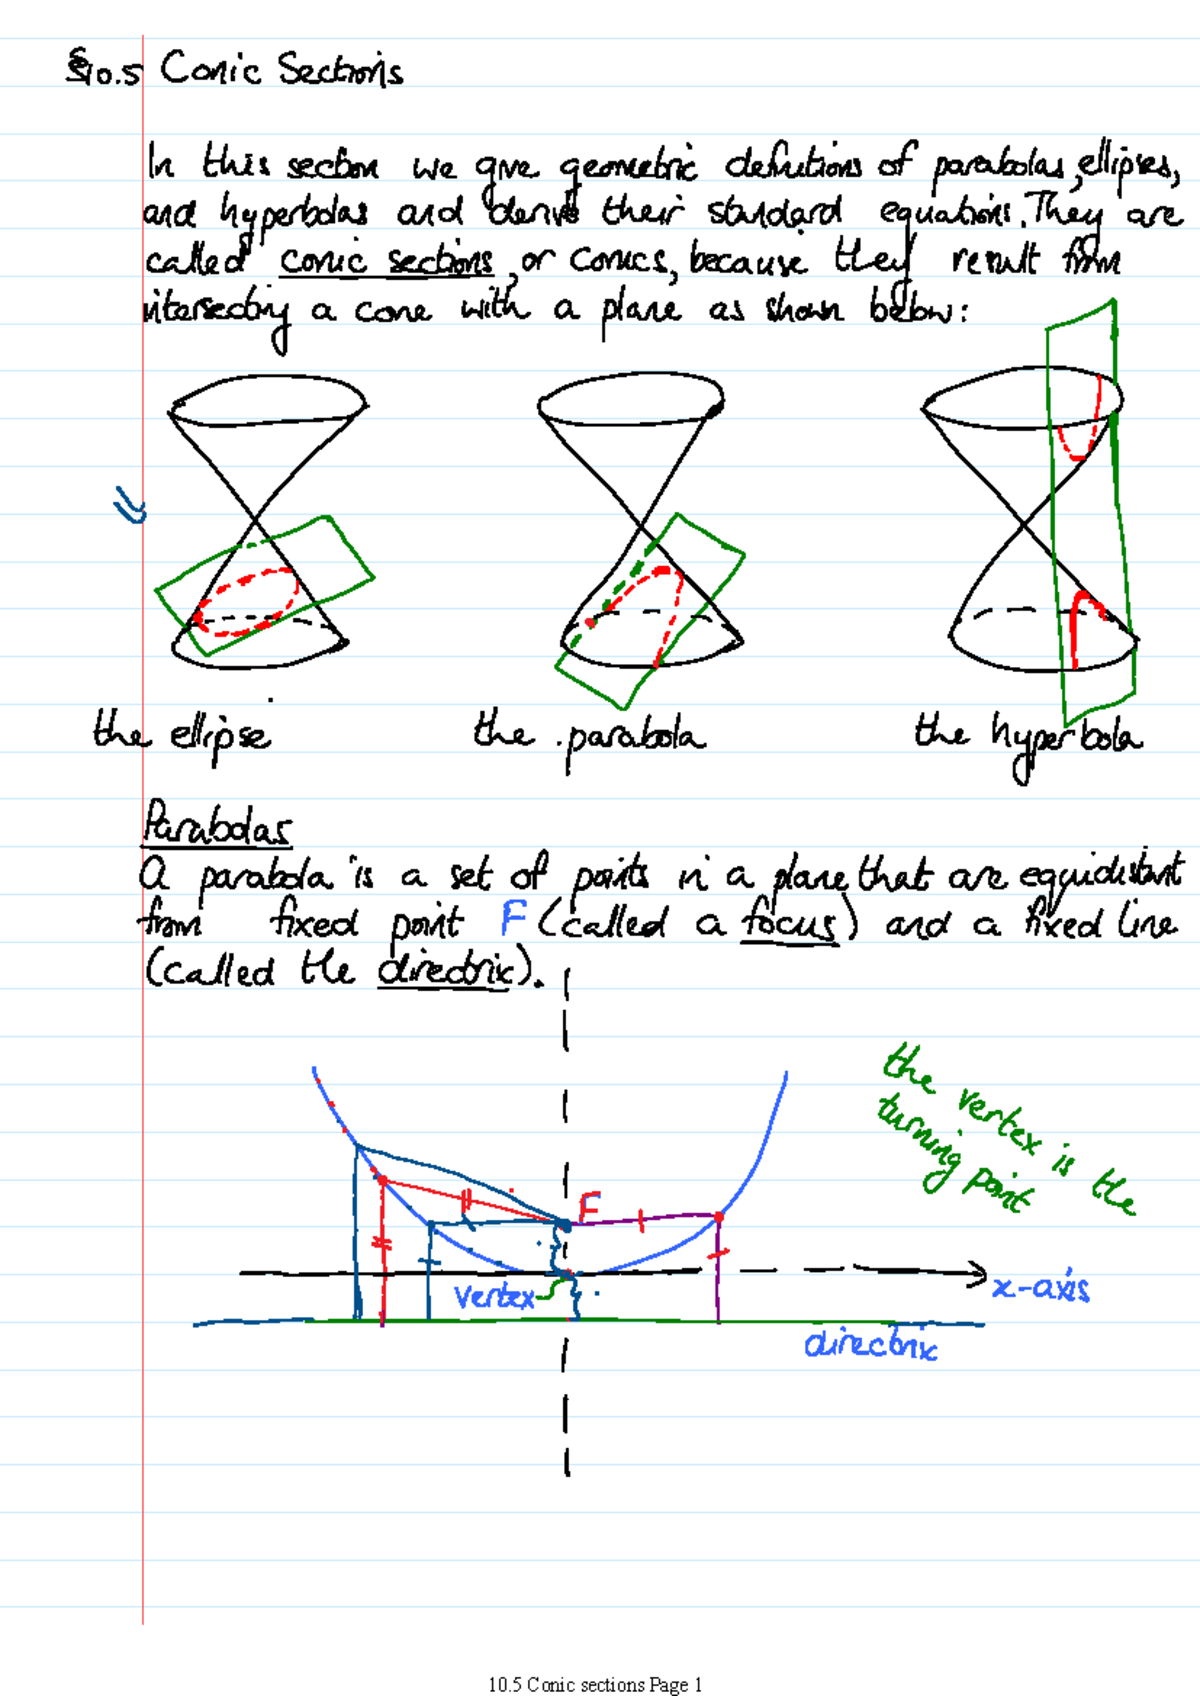 §10.5 Conic Sections
In this section we give geometric definitions of parabolas, ellipses,
and hyperbolas and derive their standard equations. They are
called conic sections, or conics, because they result from
intersecting a cone with a plane as shown below:
the ellipse
the parabola
the hyperbola
Parabolas
A parabola is a set of points in a plane that are equidistant
from fixed point F (called a focus) and a fixed line
(called the directrix).
the vertex is the
turning point
F
vertex
x-axis
directrix
10.5 Conic sections Page 1